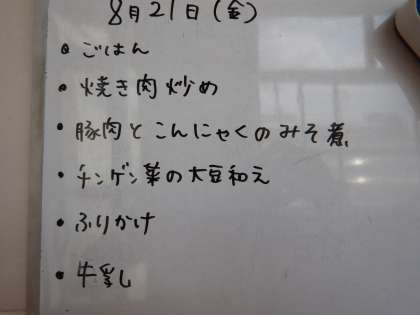 8月21日(金)
• ごはん
• 焼き肉炒め
• 豚肉とこんにゃくのみそ煮
• チンゲン菜の大豆和え
• ふりかけ
• 牛乳